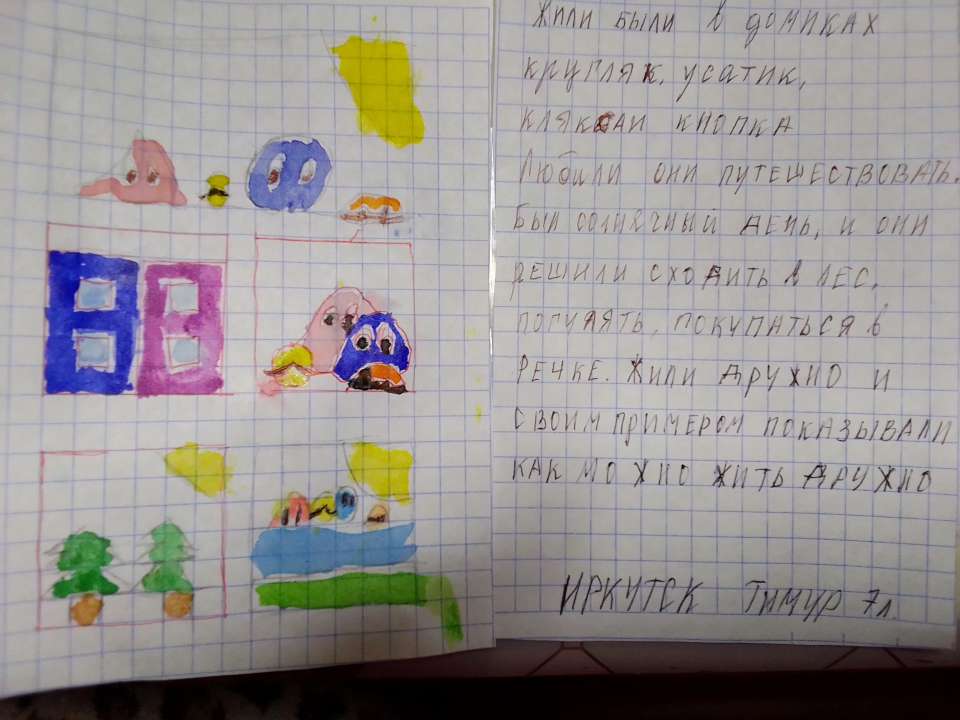 Жили были в домиках
кругляк, усатик,
кляксаи кнопка
Любили они путешествовать.
Был солнечный день, и они
решили сходить в лес,
погулять, покупаться в
речке. Жили дружно и
своим примером показывали
как можно жить дружно
ИРКУТСК Тимур 7л.